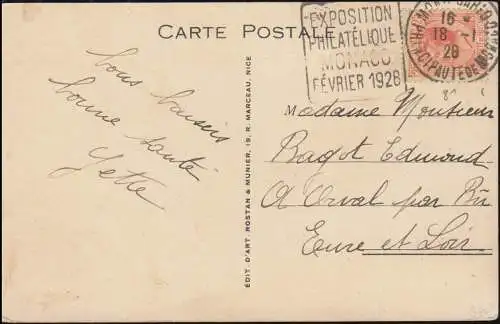 CARTE POSTALE
EXPOSITION
PHILATÉLIQUE
MONACO
FÉVRIER 1928
16
18 - 1
28
PRINCIPAUTE DE MONACO
Bons baisers
bonne santé
Yette
ÉDIT. D'ART ROSTAN & MUNIER, 19, R. MARCEAU, NICE
Madame Monsieur
Ragot Edmond
A Orval par Bû
Eure et Loir